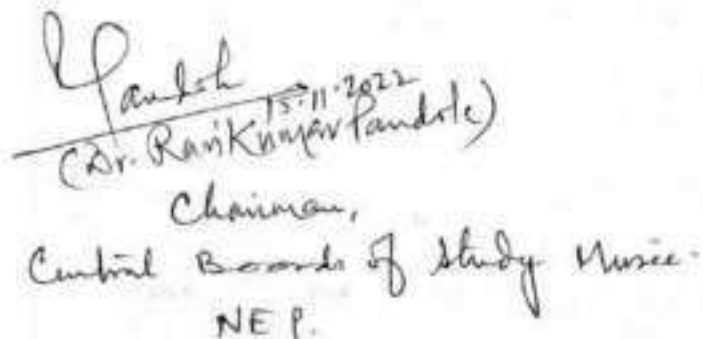 Pandole
15.11.2022
(Dr. RaviKumar Pandole)
Chairman,
Central Boards of Study Music.
NEP.